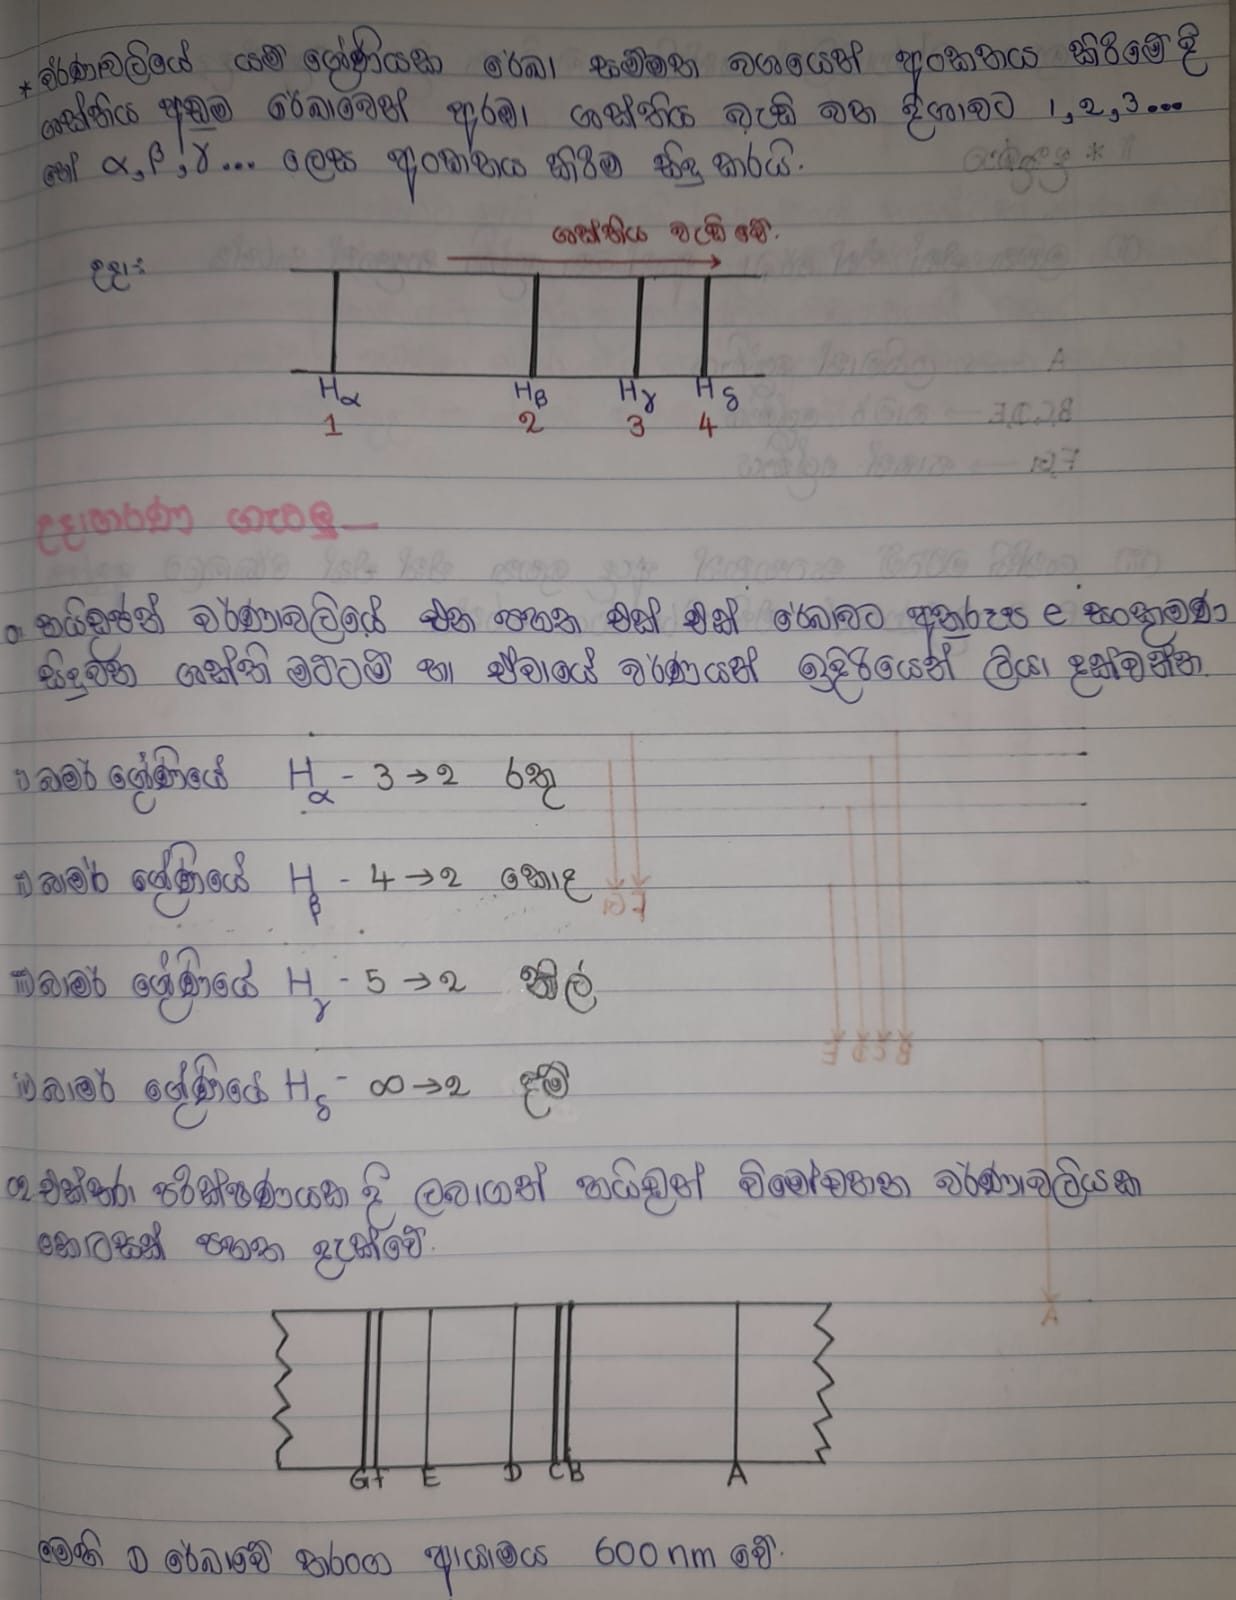 * වර්ණාවලියේ යම් ශ්‍රේණියක රේඛා සම්මත වශයෙන් අංකනය කිරීමේ දී
ශක්තිය අඩුම රේඛාවෙන් අරඹා ශක්තිය වැඩි වන දිශාවට 1, 2, 3...
හෝ α, β, γ... ලෙස අංකනය කිරීම සිදු කරයි.
ශක්තිය වැඩි වේ.
උදා:
Hα Hβ Hγ Hδ
1 2 3 4
උදාහරණ ගැටලු
01. හයිඩ්‍රජන් වර්ණාවලියේ එන පහත එක් එක් රේඛාවට අනුරූප e සංක්‍රමණ
සිදුවන ශක්ති මට්ටම් හා ඒවායේ වර්ණයන් ඉදිරියෙන් ලියා දක්වන්න.
i) බාමර් ශ්‍රේණියේ Hα - 3 → 2 රතු
ii) බාමර් ශ්‍රේණියේ Hβ - 4 → 2 කොළ
iii) බාමර් ශ්‍රේණියේ Hγ - 5 → 2 නිල්
iv) බාමර් ශ්‍රේණියේ Hδ - ∞ → 2 දම්
02. එක්තරා පරීක්ෂණයක දී ලබාගත් හයිඩ්‍රජන් විමෝචන වර්ණාවලියක
කොටසක් පහත දැක්වේ.
G F E D C B A
මෙහි D රේඛාවේ තරංග ආයාමය 600 nm වේ.